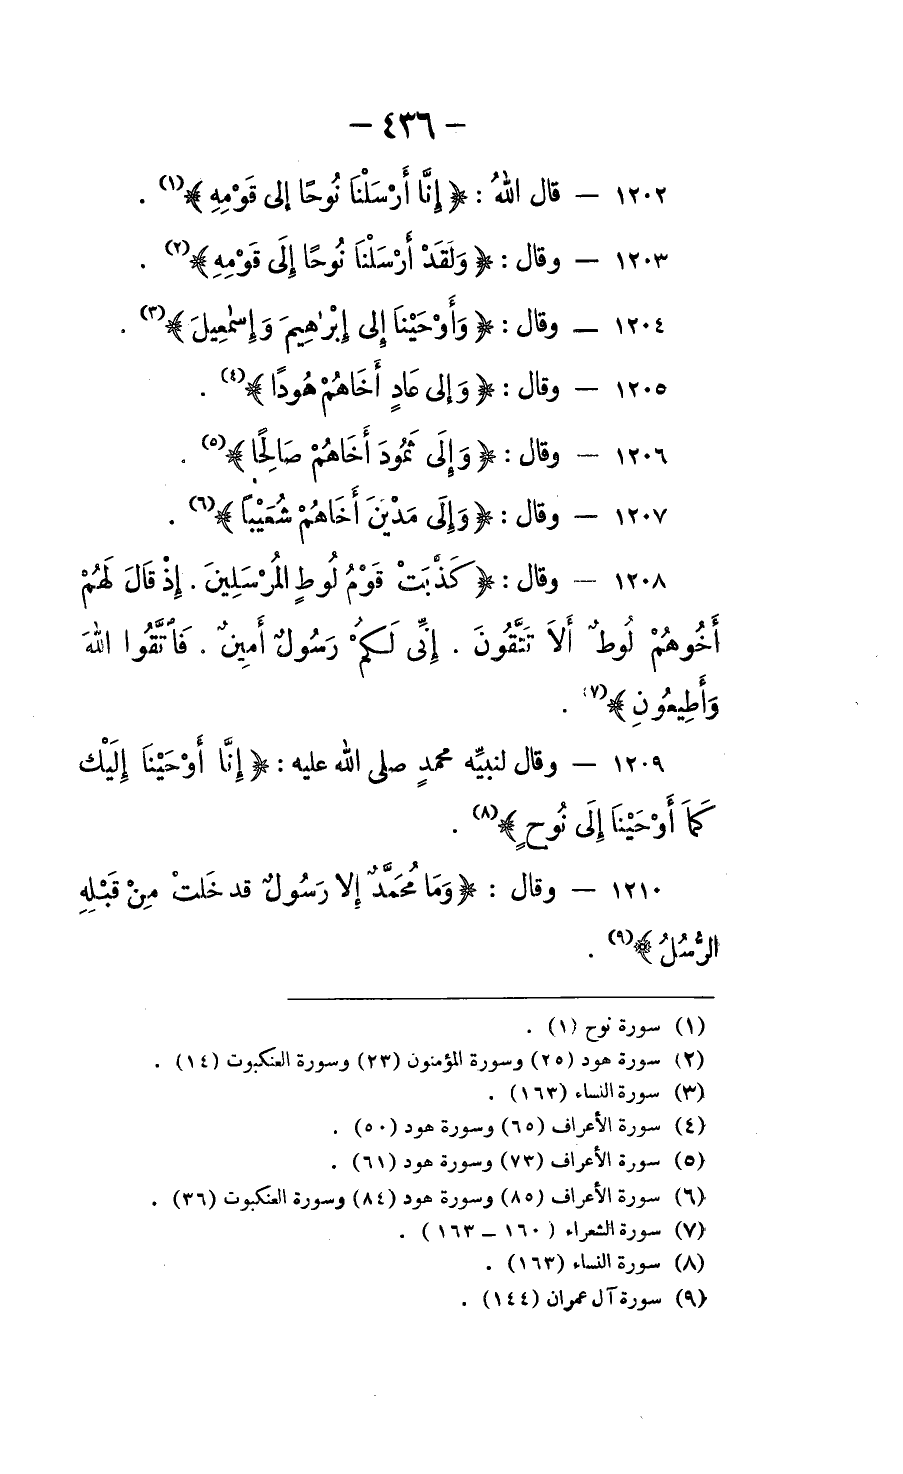 – ٤٣٦ –
١٢٠٢ – قال اللهُ : ﴿ إِنَّا أَرْسَلْنَا نُوحًا إلى قَوْمِهِ ﴾(١) .
١٢٠٣ – وقال : ﴿ وَلَقَدْ أَرْسَلْنَا نُوحًا إِلَى قَوْمِهِ ﴾(٢) .
١٢٠٤ – وقال : ﴿ وَأَوْحَيْنَا إلى إِبْرٰهِيمَ وَإِسْمٰعِيلَ ﴾(٣) .
١٢٠٥ – وقال : ﴿ وَإلى عَادٍ أَخَاهُمْ هُودًا ﴾(٤) .
١٢٠٦ – وقال : ﴿ وَإِلَى ثَمُودَ أَخَاهُمْ صَالِحًا ﴾(٥) .
١٢٠٧ – وقال : ﴿ وَإِلَى مَدْيَنَ أَخَاهُمْ شُعَيْبًا ﴾(٦) .
١٢٠٨ – وقال : ﴿ كَذَّبَتْ قَوْمُ لُوطٍ المُرْسَلِينَ . إِذْ قَالَ لَهُمْ
أَخُوهُمْ لُوطٌ أَلاَ تَتَّقُونَ . إِنِّى لَكُمْ رَسُولٌ أَمِينٌ . فَاَتَّقُوا اللهَ
وَأَطِيعُونِ ﴾(٧) .
١٢٠٩ – وقال لنبيِّه محمدٍ صلى الله عليه : ﴿ إِنَّا أَوْحَيْنَا إِلَيْكَ
كَمَا أَوْحَيْنَا إِلَى نُوحٍ ﴾(٨) .
١٢١٠ – وقال : ﴿ وَمَا مُحَمَّدٌ إلا رَسُولٌ قد خَلَتْ مِنْ قَبْلِهِ
الرُّسُلُ ﴾(٩) .
(١) سورة نوح (١) .
(٢) سورة هود (٢٥) وسورة المؤمنون (٢٣) وسورة العنكبوت (١٤) .
(٣) سورة النساء (١٦٣) .
(٤) سورة الأعراف (٦٥) وسورة هود (٥٠) .
(٥) سورة الأعراف (٧٣) وسورة هود (٦١) .
(٦) سورة الأعراف (٨٥) وسورة هود (٨٤) وسورة العنكبوت (٣٦) .
(٧) سورة الشعراء ( ١٦٠ – ١٦٣ ) .
(٨) سورة النساء (١٦٣) .
(٩) سورة آل عمران (١٤٤) .